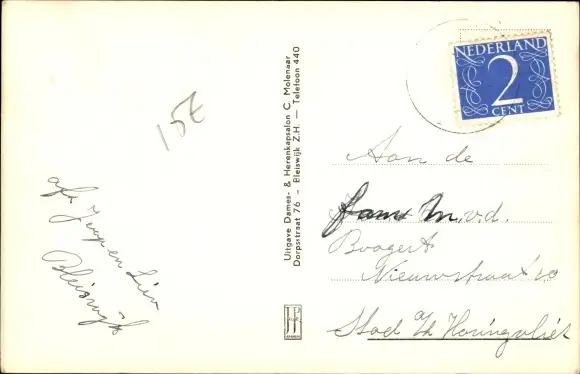 NEDERLAND
2
CENT
15E
Uitgave Dames- & Herenkapsalon C. Molenaar
Dorpsstraat 76 – Bleiswijk Z.H. — Telefoon 440
Aan de
Fam M. v.d.
Boogert
Nieuwstraat 20
Stad a/h Haringvliet
afz Jaap en Liev
Bleiswijk